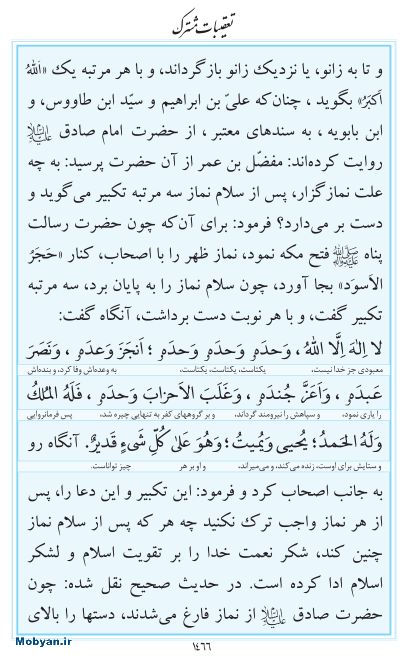 تعقیبات مشترک
و تا به زانو، یا نزدیک زانو بازگرداند، و با هر مرتبه یک «اَللهُ
اَکبَرُ» بگوید ، چنان‌که علیّ بن ابراهیم و سیّد ابن طاووس، و
ابن بابویه ، به سندهای معتبر ، از حضرت امام صادق علیه‌السلام
روایت کرده‌اند: مفضّل بن عمر از آن حضرت پرسید: به چه
علت نمازگزار، پس از سلام نماز سه مرتبه تکبیر می‌گوید و
دست بر می‌دارد؟ فرمود: برای آن‌که چون حضرت رسالت
پناه ﷺ فتح مکه نمود، نماز ظهر را با اصحاب، کنار «حَجَرُ
الاَسوَد» بجا آورد، چون سلام نماز را به پایان برد، سه مرتبه
تکبیر گفت، و با هر نوبت دست برداشت، آنگاه گفت:
لا اِلهَ اِلَّا اللهُ ، وَحدَهُ وَحدَهُ وَحدَهُ ؛ اَنجَزَ وَعدَهُ ، وَنَصَرَ
معبودی جز خدا نیست، یکتاست، یکتاست، یکتاست، به وعده‌اش وفا کرد، و بنده‌اش
عَبدَهُ ، وَاَعَزَّ جُندَهُ ، وَغَلَبَ الاَحزابَ وَحدَهُ ، فَلَهُ المُلكُ
را یاری نمود، و سپاهش را نیرومند گرداند، و بر گروههای کفر به تنهایی چیره شد، پس فرمانروایی
وَلَهُ الحَمدُ؛ یُحیی وَیُمیتُ؛ وَهُوَ عَلی کُلِّ شَیءٍ قَدیرٌ. آنگاه رو
و ستایش برای اوست، زنده می‌کند، و می‌میراند، و او بر هر چیز تواناست.
به جانب اصحاب کرد و فرمود: این تکبیر و این دعا را، پس
از هر نماز واجب ترک نکنید چه هر که پس از سلام نماز
چنین کند، شکر نعمت خدا را بر تقویت اسلام و لشکر
اسلام ادا کرده است. در حدیث صحیح نقل شده: چون
حضرت صادق علیه‌السلام از نماز فارغ می‌شدند، دستها را بالای
۱۴۶۶
Mobyan.ir